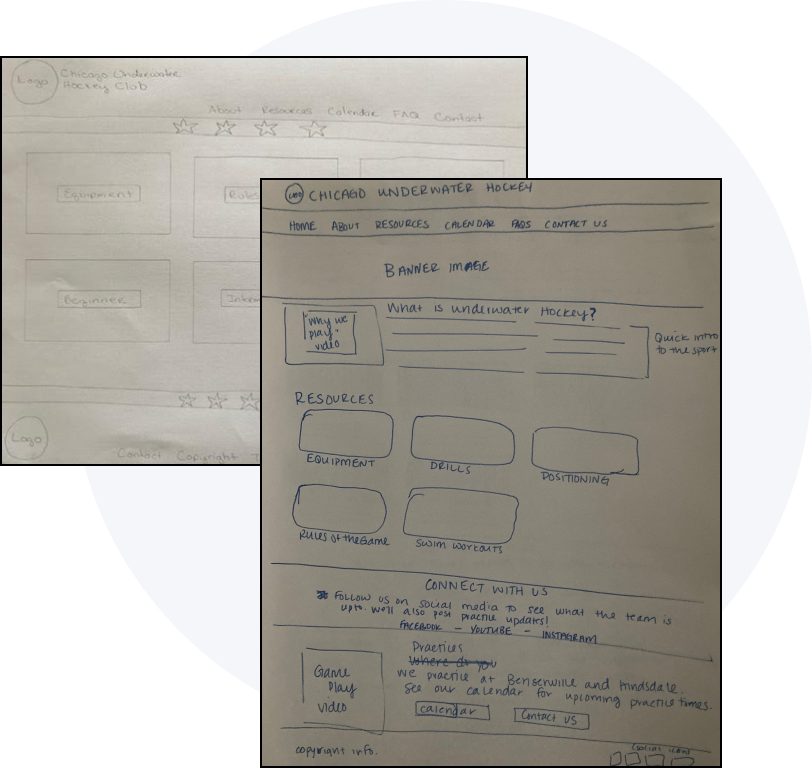 Logo
Chicago Underwater
Hockey Club
About Resources Calendar FAQ Contact
Equipment
Rules
Beginner
Logo
Contact Copyright
LOGO CHICAGO UNDERWATER HOCKEY
HOME ABOUT RESOURCES CALENDAR FAQS CONTACT US
BANNER IMAGE
Why we
play -
video
What is underwater Hockey?
Quick intro
to the sport
RESOURCES
EQUIPMENT
DRILLS
POSITIONING
RULES OF the GAME
SWIM WORKOUTS
CONNECT WITH US
FOLLOW US on social media to see what the team is
upto. We'll also post practice updates!
FACEBOOK - YOUTUBE - INSTAGRAM
Game
Play
video
Practices
Where do you
We practice at Bensenville and Hindsdale.
See our calendar for upcoming practice times.
calendar
Contact US
copyright info.
(social icons